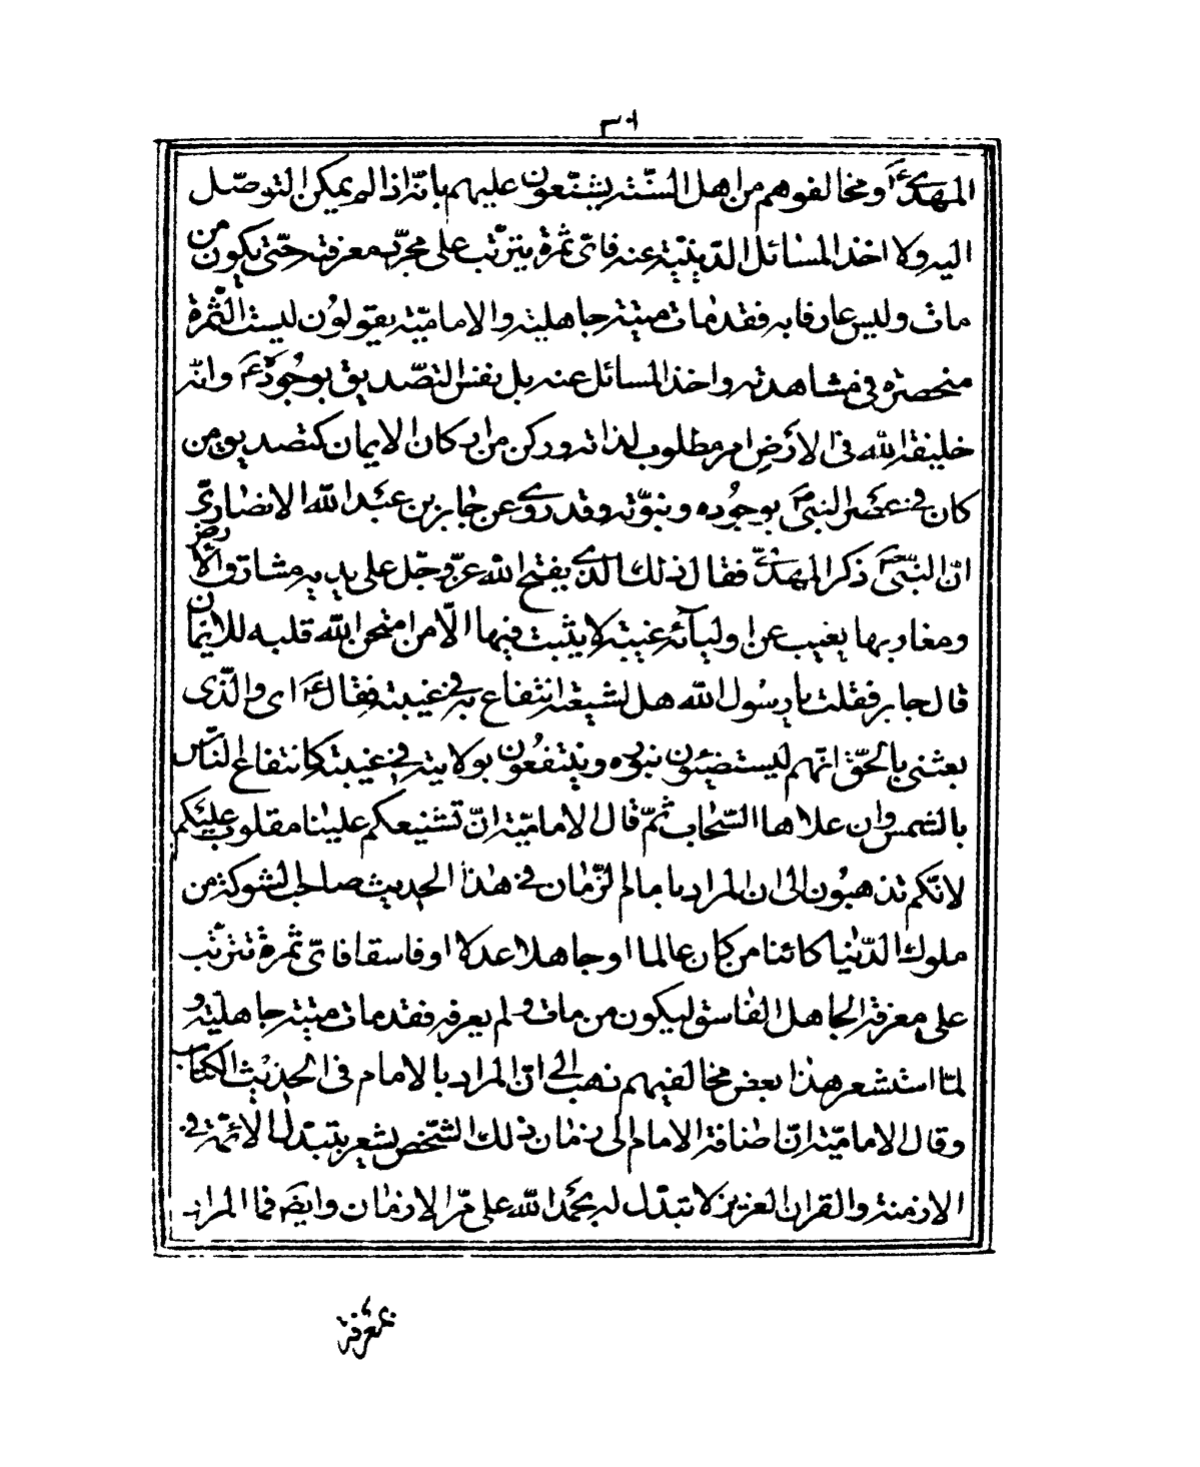 المهدىّ ع و مخالفوهم من اهل السنّة يشنّعون عليهم بانّه اذا لم يمكن التوصّل
اليه ولا اخذ المسائل الدّينيّة عنه فاىّ ثمرة يترتّب على مجرّد معرفته حتّى يكون من
مات وليس عارفا به فقد مات ميتة جاهلية والاماميّة يقولون ليست الثّمرة
منحصرة فى مشاهدته واخذ المسائل عنه بل نفس التصّديق بوجوده ع وانّه
خليفة الله فى الارض امر مطلوب لذاته وركن من اركان الايمان كتصديق من
كان فى عصر النبىّ ص بوجوده ونبوّته وقد روى عن جابر بن عبد الله الانصارىّ رض
انّ النّبىّ ص ذكر المهدىّ فقال ذلك الّذى يفتح الله عزّ وجلّ على يديه مشارق الأ
ومغاربها يغيب عن اوليآئه غيبة لا يثبت فيها الّا من امتحن الله قلبه للايمان
قال جابر فقلت يا رسول الله هل لشيعته انتفاع به فى غيبته فقال ع اى والّذى
بعثنى بالحّق انّهم ليستضيئون بنوره وينتفعون بولايته فى غيبته كانتفاع النّاس
بالشمس وان علاها السّحاب ثمّ قال الاماميّة انّ تشنيعكم علينا مقلوب عليكم
لانّكم تذهبون الى ان المراد بامام الزّمان فى هذا الحديث صاحب الشوكة من
ملوك الدّنيا كائنا من كان عالما او جاهلا عدلا او فاسقا فاىّ ثمرة تترتّب
على معرفة الجاهل الفاسق ليكون من مات ولم يعرفه فقد مات ميتة جاهليّة و
لمّا استشعر هذا بعض مخالفيهم ذهب الى انّ المراد بالامام فى الحديث الكتاب
وقال الاماميّة انّ اضافة الامام الى زمان ذلك الشّخص يشعر بتبدّل الائمّة فى
الازمنة والقران العزيز لا تبدّل له بحمد الله على مرّ الازمان وايضَ فما المراد
بمعرفة